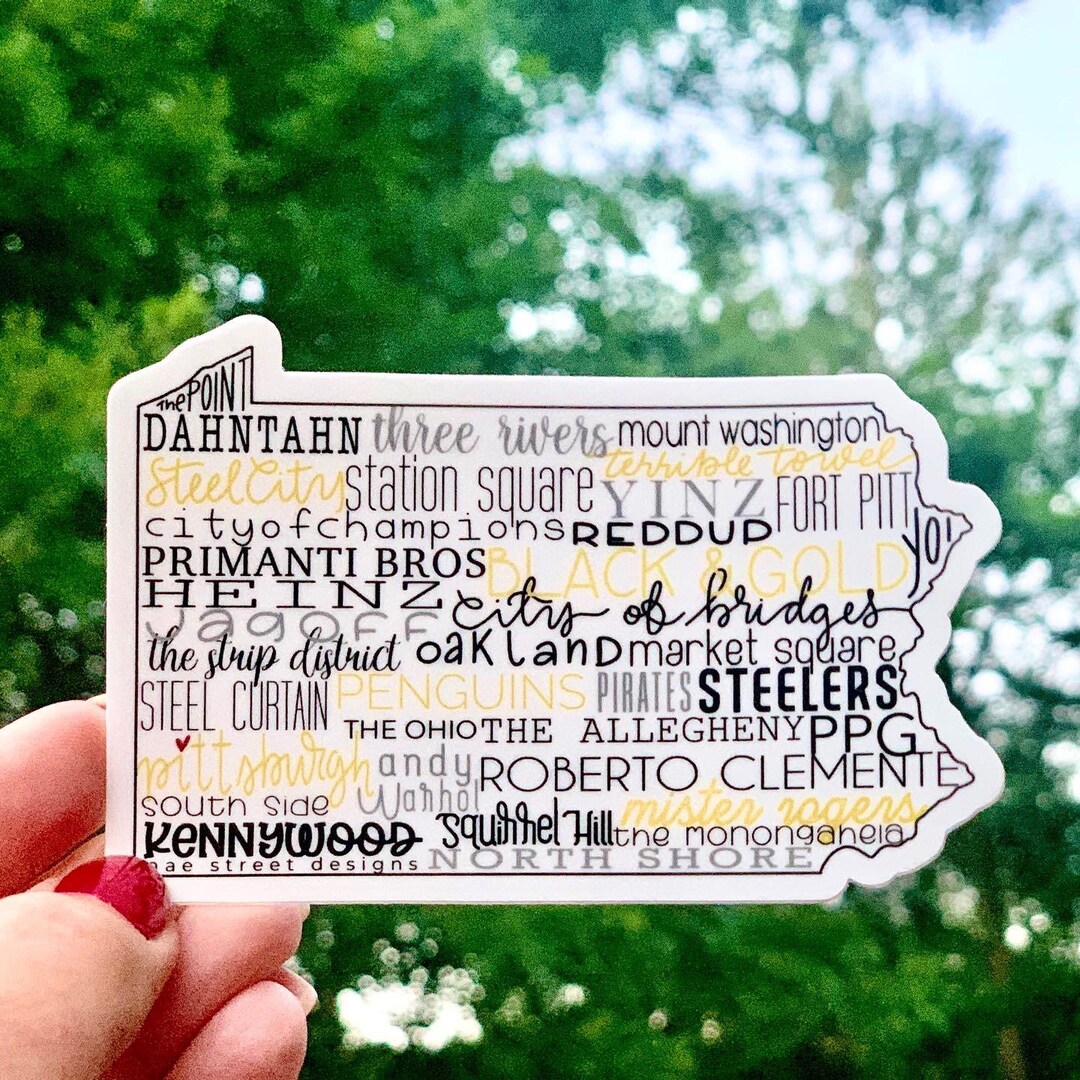 the POINT
DAHNTAHN three rivers mount washington
Steel City station square terrible towel
YINZ FORT PITT
cityofchampions REDDUP YOI
PRIMANTI BROS BLACK & GOLD
HEINZ city of bridges
Jagoff
the strip district OAKLAND market square
STEEL CURTAIN PENGUINS PIRATES STEELERS
THE OHIO THE ALLEGHENY PPG
pittsburgh andy Warhol ROBERTO CLEMENTE
south side mister rogers
KENNYWOOD Squirrel Hill the monongahela
street designs NORTH SHORE